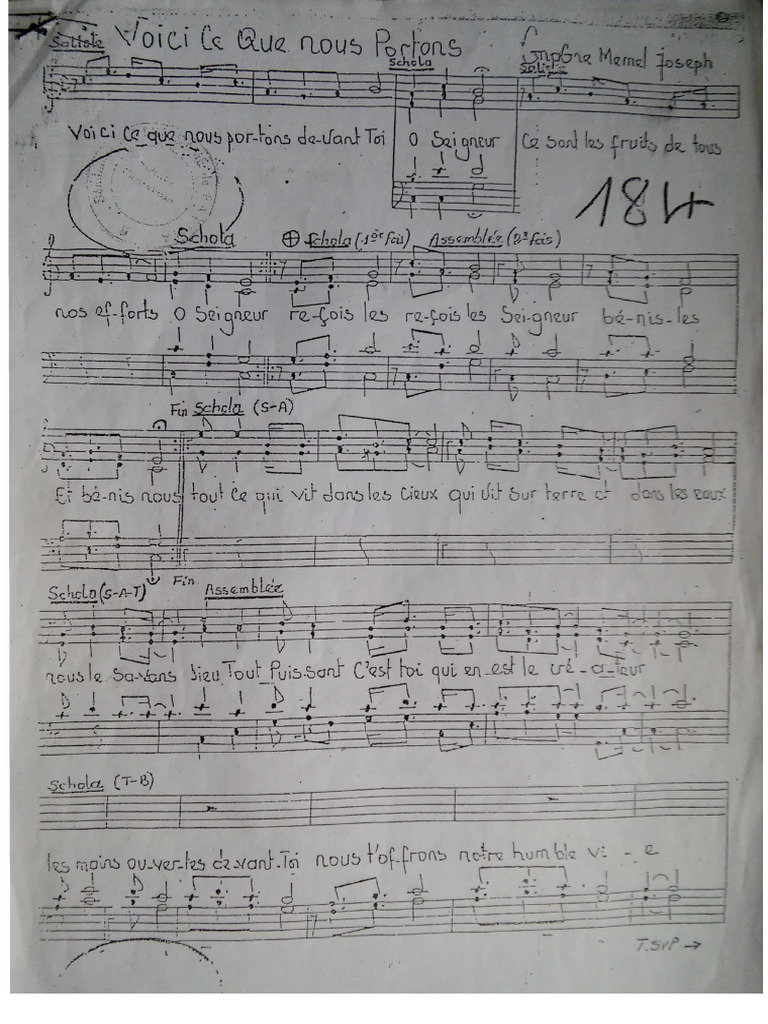 Soliste Voici Ce Que nous Portons
Schola
Solist
Memel Joseph
Voici ce que nous por-tons de-vant Toi O Seigneur Ce sont les fruits de tous
184
Schola ⊕ Schola (1ère fois) Assemblée (2e fois)
nos ef-forts O Seigneur re-çois les re-çois les Sei-gneur bé-nis-les
Fin Schola (S-A)
Et bé-nis nous tout ce qui vit dans les cieux qui vit sur terre et dans les eaux
Fin
Schola (S-A-T) Assemblée
nous le sa-vons Dieu Tout Puis-sant C'est toi qui en-est le cré-a-teur
Schola (T-B)
les mains ou-ver-tes de-vant-Toi nous t'of-frons notre humble vi--e
T.SVP →